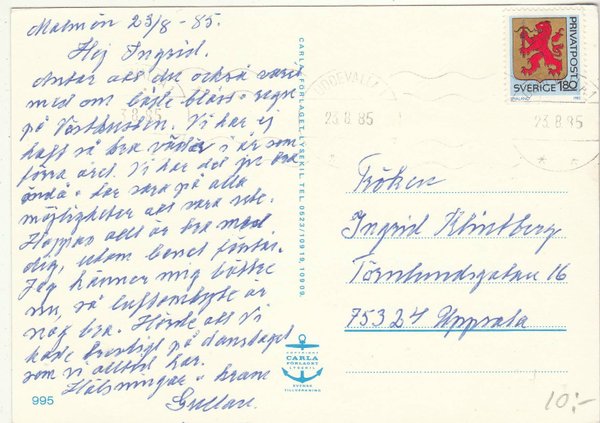 Malmön 23/8-85.
Hej Ingrid.
Antar att du också varit
med om både blåst o regn
på Västkusten. Vi har ej
haft så bra väder i år som
förra året. Vi har det bra
ändå o har vara på alla
möjligheter att vara ute.
Hoppas allt är bra med
dig, utom benet förstås.
Jag känner mig bättre
nu, så luftombyte är
nog bra. Hörde att Vi
hade trevligt på danslaget
som vi alltid har.
Hälsningar o kram
Gullan.
995
CARLA-FÖRLAGET, LYSEKIL TEL. 0523/10919, 10909.
COPYRIGHT
CARLA
FÖRLAGET
LYSEKIL
SVENSK
TILLVERKNING
PRIVATPOST
SVERIGE 180
UDDEVALLA
23.8.85
23.8.85
Fröken
Ingrid Klintberg
Törnlundsgatan 16
75324 Uppsala
10:-